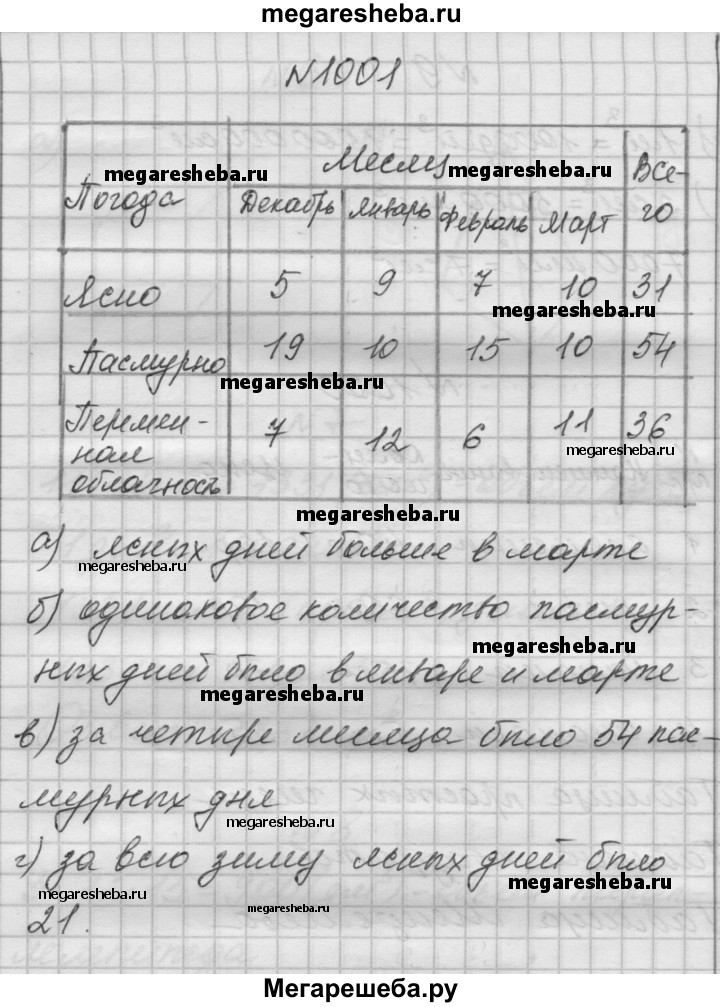 megaresheba.ru
N1001
Месяц
megaresheba.ru
Все-
го
megaresheba.ru
Погода
Декабрь Январь Февраль Март
Ясно 5 9 7 10 31
megaresheba.ru
Пасмурно 19 10 15 10 54
megaresheba.ru
Перемен-
ная
облачность
7 12 6 11 36
megaresheba.ru
megaresheba.ru
а) ясных дней больше в марте
megaresheba.ru
б) одинаковое количество пасмур-
megaresheba.ru
ных дней было в январе и марте
megaresheba.ru
в) за четыре месяца было 54 пас-
мурных дня
megaresheba.ru
г) за всю зиму ясных дней было
megaresheba.ru
megaresheba.ru
21.
megaresheba.ru
Мегарешеба.ру